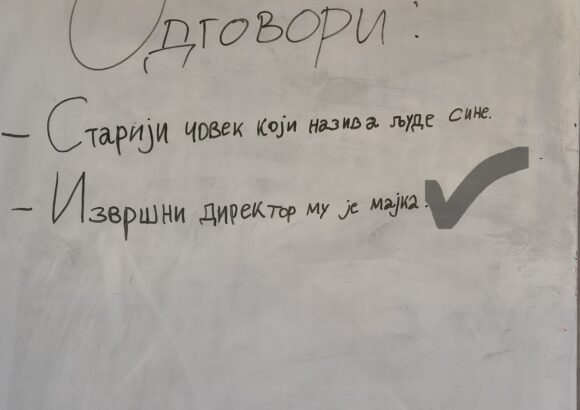 Одговори:
- Старији човек који назива људе сине.
- Извршни директор му је мајка.